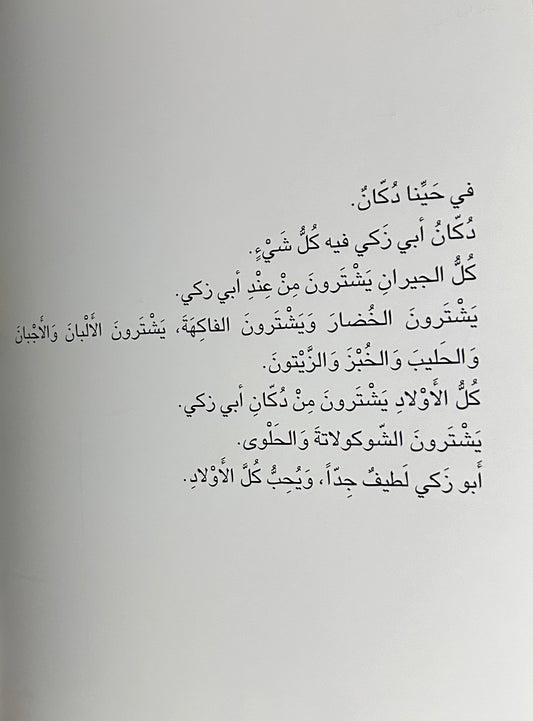 في حَيِّنا دُكّانٌ.
دُكّانُ أبي زَكي فيه كُلُّ شَيْءٍ.
كُلُّ الجيرانِ يَشْتَرونَ مِنْ عِنْدِ أبي زكي.
يَشْتَرونَ الخُضارَ وَيَشْتَرونَ الفاكِهَةَ، يَشْتَرونَ الأَلْبانَ وَالأَجْبانَ
وَالحَليبَ وَالخُبْزَ وَالزَّيْتونَ.
كُلُّ الأَوْلادِ يَشْتَرونَ مِنْ دُكّانِ أبي زكي.
يَشْتَرونَ الشّوكولاتةَ وَالحَلْوى.
أَبو زَكي لَطيفٌ جِدّاً، وَيُحِبُّ كُلَّ الأَوْلادِ.